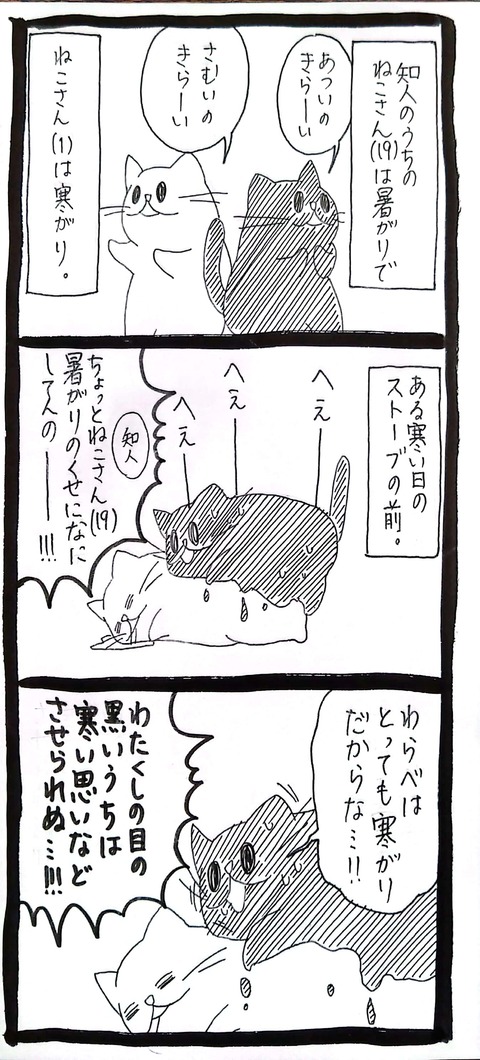 知人のうちの
ねこさん(19)は暑がりで
あついの
きらーい
さむいの
きらーい
ねこさん(1)は寒がり。
ある寒い日の
ストーブの前。
へぇ
へぇ
へぇ
知人
ちょっとねこさん(19)
暑がりのくせになに
してんのー!!!
わらべは
とっても寒がり
だからな…!!
わたくしの目の
黒いうちは
寒い思いなど
させられぬ…!!!